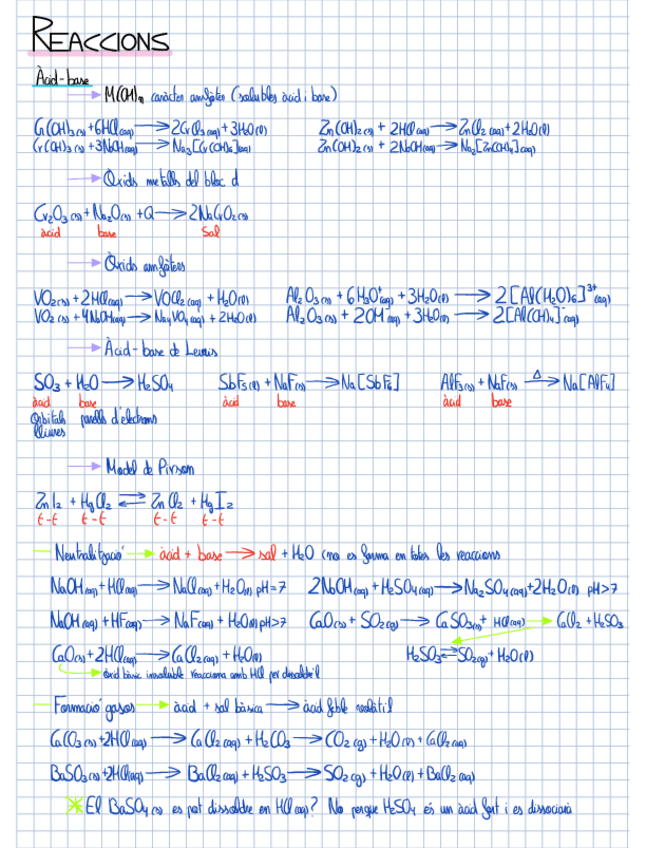 REACCIONS
Àcid-base
→ M(OH)n caràcter amfòter (solubles àcid i base)
Cr(OH)3(s) + 6HCl(aq) → 2CrCl3(aq) + 3H2O(l) Zn(OH)2(s) + 2HCl(aq) → ZnCl2(aq) + 2H2O(l)
Cr(OH)3(s) + 3NaOH(aq) → Na3[Cr(OH)6](aq) Zn(OH)2(s) + 2NaOH(aq) → Na2[Zn(OH)4](aq)
→ Òxids metalls del bloc d
Cr2O3(s) + Na2O(s) + Q → 2NaCrO2(s)
àcid base Sal
→ Òxids amfòters
VO2(s) + 2HCl(aq) → VOCl2(aq) + H2O(l) Al2O3(s) + 6H3O+(aq) + 3H2O(l) → 2[Al(H2O)6]3+(aq)
VO2(s) + 4NaOH(aq) → Na4VO4(aq) + 2H2O(l) Al2O3(s) + 2OH-(aq) + 3H2O(l) → 2[Al(OH)4]-(aq)
→ Àcid-base de Lewis
SO3 + H2O → H2SO4 SbF5(l) + NaF(s) → Na[SbF6] AlF3(s) + NaF(s) Δ→ Na[AlF4]
àcid base àcid base àcid base
Orbitals parells d'electrons
lliures
→ Model de Pirson
ZnI2 + HgCl2 ⇌ ZnCl2 + HgI2
t-t t-t t-t t-t
Neutralització → àcid + base → sal + H2O (no es forma en totes les reaccions
NaOH(aq) + HCl(aq) → NaCl(aq) + H2O(l) pH=7 2NaOH(aq) + H2SO4(aq) → Na2SO4(aq) + 2H2O(l) pH>7
NaOH(aq) + HF(aq) → NaF(aq) + H2O(l) pH>7 CaO(s) + SO2(g) → CaSO3(s) + HCl(aq) → CaCl2 + H2SO3
CaO(s) + 2HCl(aq) → CaCl2(aq) + H2O(l) H2SO3 ⇌ SO2(g) + H2O(l)
òxid bàsic insoluble reacciona amb HCl per dissoldre'l
Formació gasos → àcid + sal bàsica → àcid feble volàtil
CaCO3(s) + 2HCl(aq) → CaCl2(aq) + H2CO3 → CO2(g) + H2O(l) + CaCl2(aq)
BaSO3(s) + 2HCl(aq) → BaCl2(aq) + H2SO3 → SO2(g) + H2O(l) + BaCl2(aq)
El BaSO4(s) es pot dissoldre en HCl(aq)? No perque H2SO4 és un àcid fort i es dissociarà